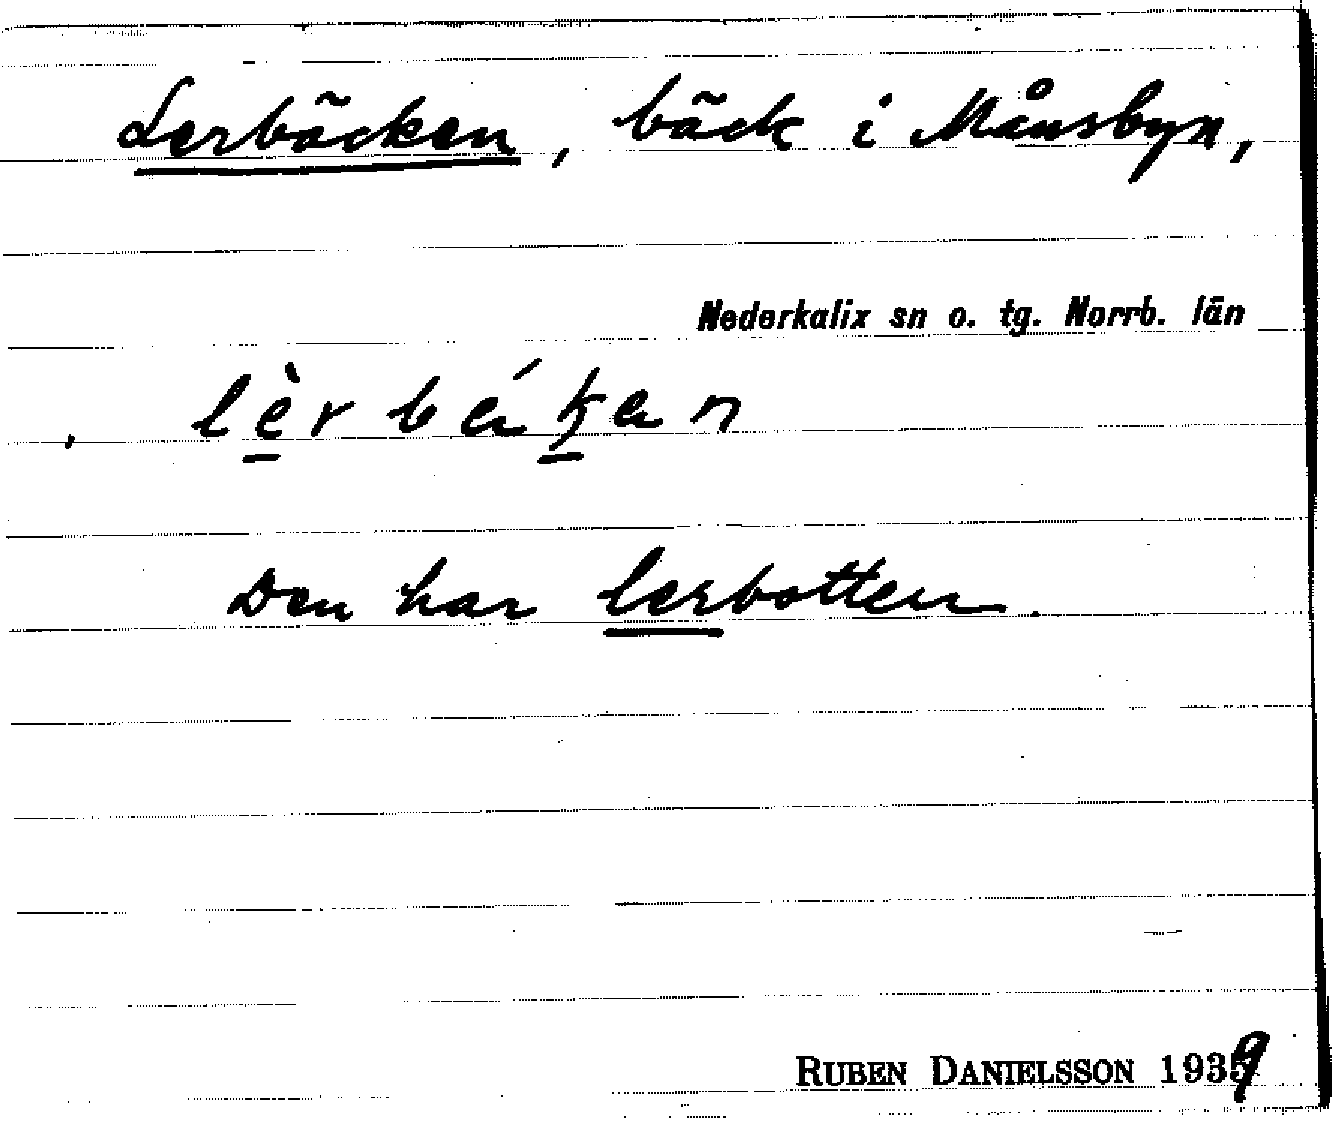 Lerbäcken, bäck i Månsbyn,
Nederkalix sn o. tg. Norrb. län
Den har lerbotten.
RUBEN DANIELSSON 1939